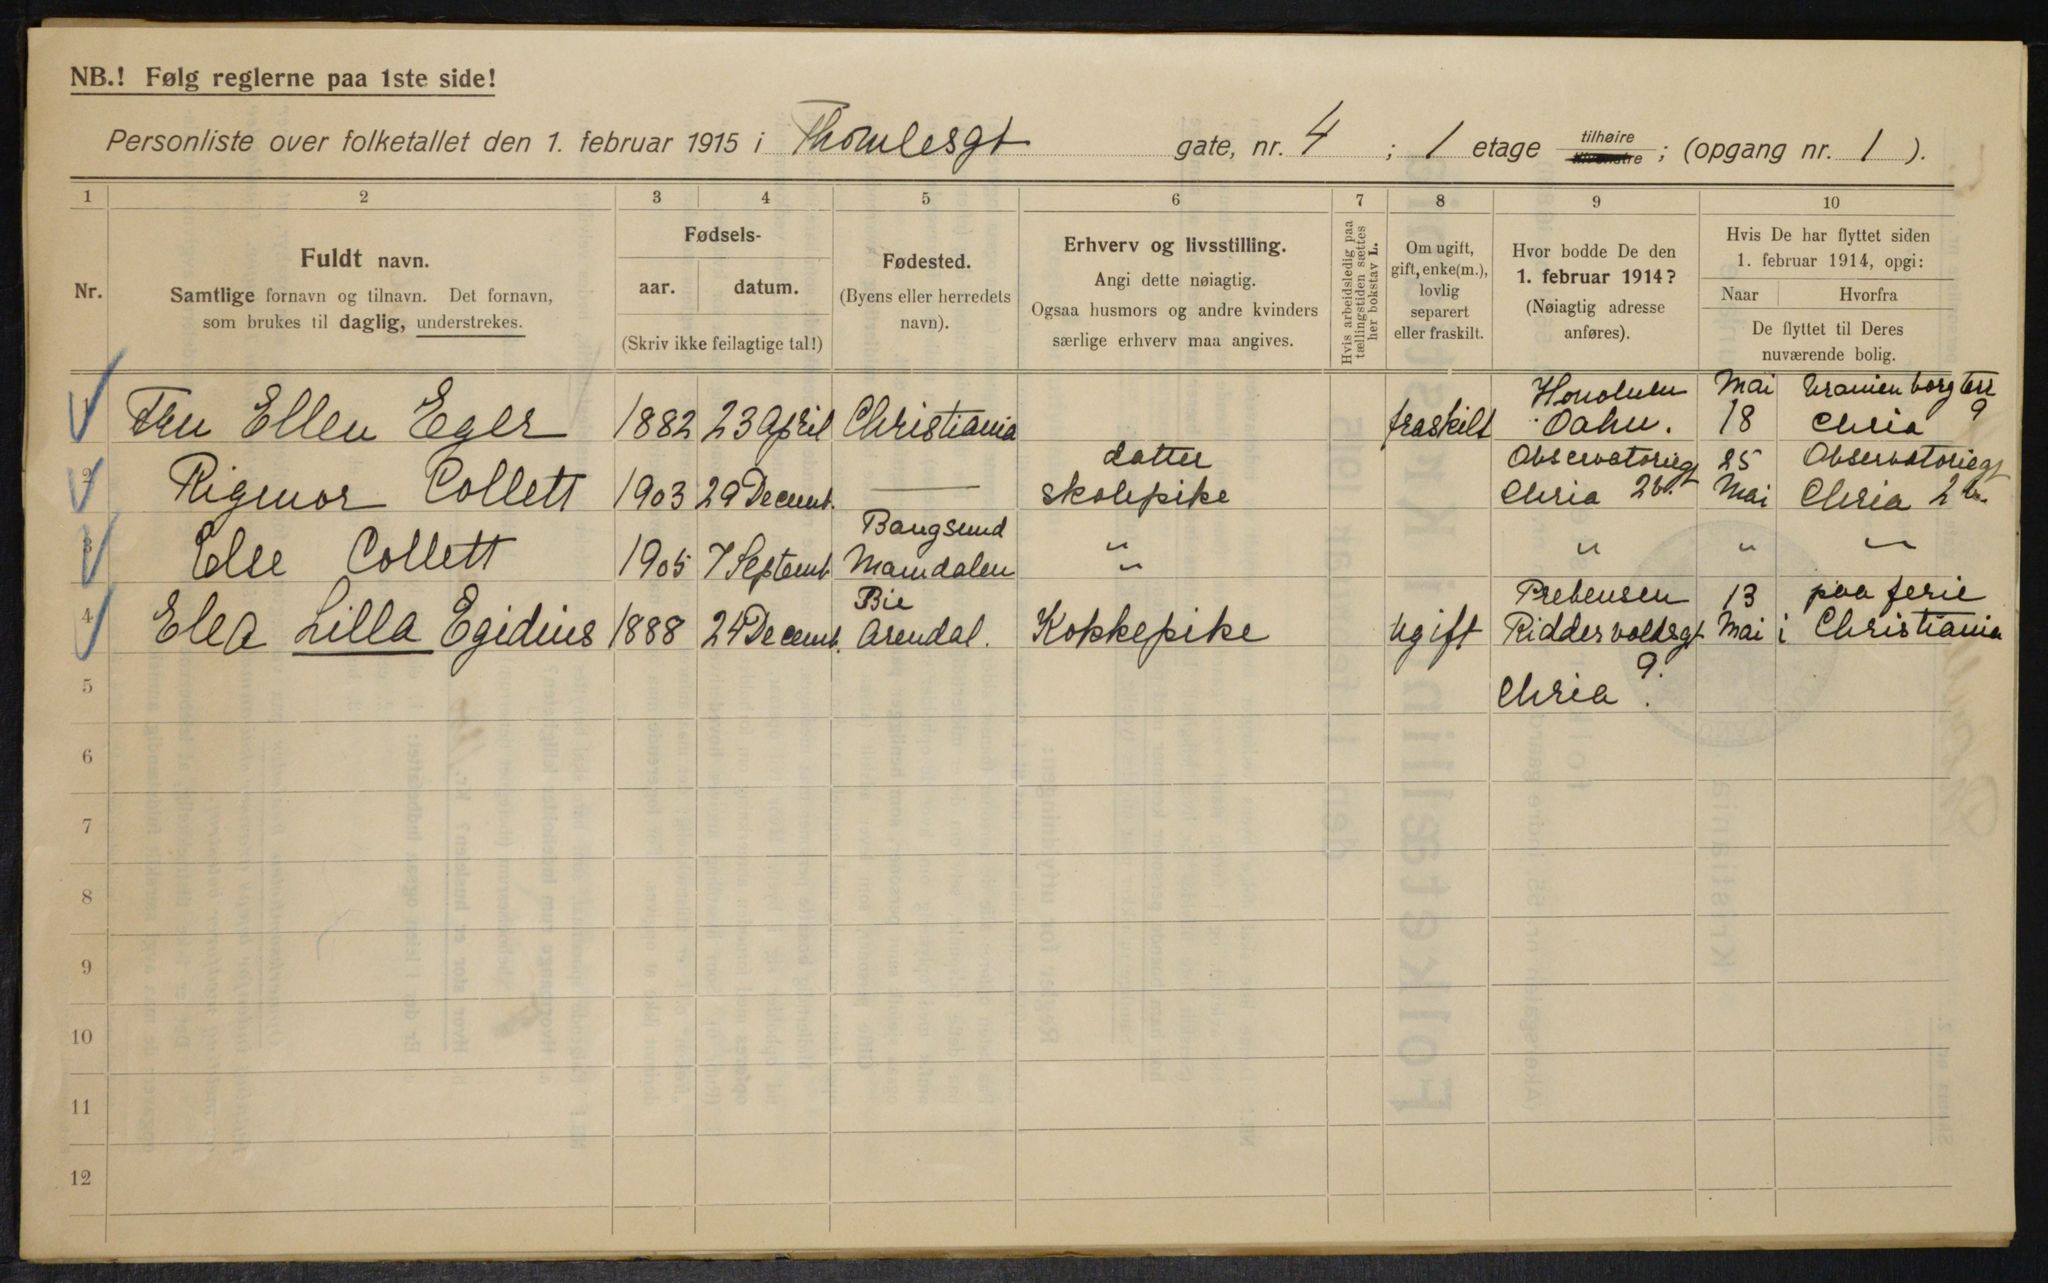 NB.! Følg reglerne paa 1ste side!
Personliste over folketallet den 1. februar 1915 i Thomlesgt gate, nr. 4 ; 1 etage tilhøire tilvenstre ; (opgang nr. 1 ).
1 2 3 4 5 6 7 8 9 10
Nr.
Fuldt navn.
Samtlige fornavn og tilnavn. Det fornavn,
som brukes til daglig, understrekes.
Fødsels-
aar. datum.
(Skriv ikke feilagtige tal!)
Fødested.
(Byens eller herredets
navn).
Erhverv og livsstilling.
Angi dette nøiagtig.
Ogsaa husmors og andre kvinders
særlige erhverv maa angives.
Hvis arbeidsledig paa
tællingstiden sættes
her bokstav L.
Om ugift,
gift, enke(m.),
lovlig
separert
eller fraskilt.
Hvor bodde De den
1. februar 1914?
(Nøiagtig adresse
anføres).
Hvis De har flyttet siden
1. februar 1914, opgi:
Naar Hvorfra
De flyttet til Deres
nuværende bolig.
Honolulu Mai Uranienborgterr
1 Fru Ellen Eger 1882 23 April Christiania fraskilt Oahu. 18 Chria 9
datter Observatoriegt 25 Observatoriegt
2 Rigmor Collett 1903 29 Decemb. — skolepike Chria 2b. Mai Chria 2b.
Bangsund
3 Else Collett 1905 7 Septemb. Namdalen " " " " "
Bie Prebensen 13 paa ferie
4 Elea Lilla Egidius 1888 24 Decemb. Arendal. Kokkepike ugift Riddervoldsgt Mai i Christiania
9.
5 Chria.
6
7
8
9
10
11
12